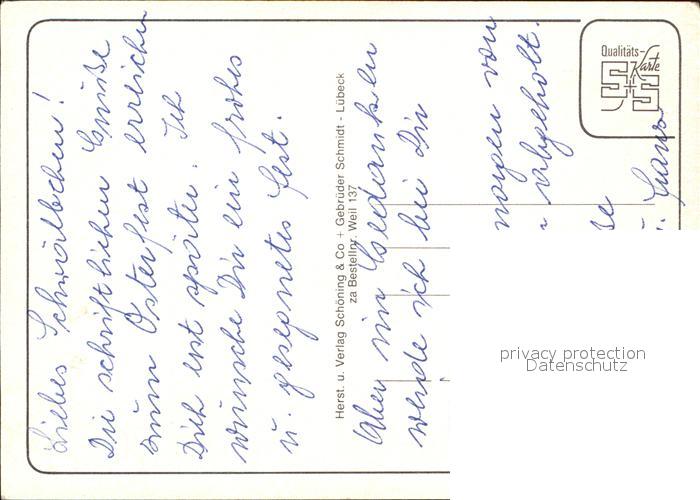 Liebes Schwälbchen!
Die schriftlichen Grüße
zum Osterfest erreichen
Dich erst später. Ich
wünsche Dir ein frohes
u. gesegnetes Fest.
Herst. u. Verlag Schöning & Co + Gebrüder Schmidt - Lübeck
za Bestellnr. Weil 137
Aber im Gedanken
werde ich bei Dir
morgen von
abgeholt.
Hans
Qualitäts-
Karte
S+S
privacy protection
Datenschutz